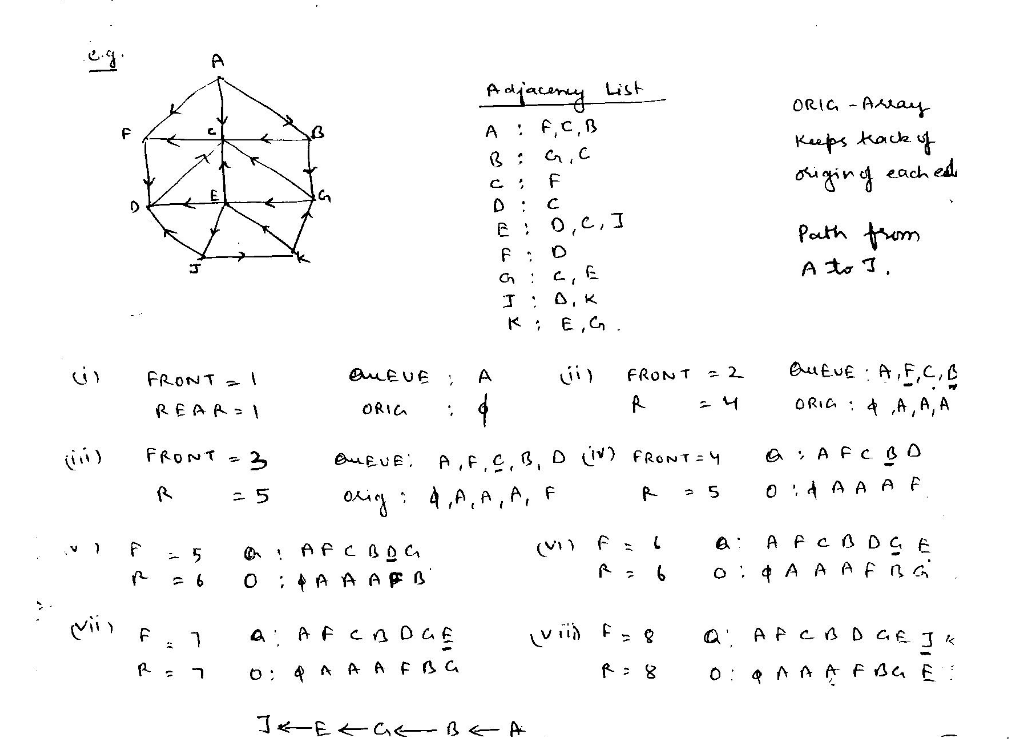 e.g.
A
F C B
D E G
J K
Adjacency List
A : F, C, B
B : G, C
C : F
D : C
E : D, C, J
F : D
G : C, E
J : D, K
K : E, G.
ORIG - Array
Keeps track of
origin of each ed
Path from
A to J.
(i) FRONT = 1 QUEUE : A
REAR = 1 ORIG : ϕ
(ii) FRONT = 2 QUEUE : A, F, C, B
R = 4 ORIG : ϕ, A, A, A
(iii) FRONT = 3 QUEUE : A, F, C, B, D
R = 5 orig : ϕ, A, A, A, F
(iv) FRONT = 4 Q : A F C B D
R = 5 O : ϕ A A A F
v) F = 5 Q : A F C B D G
R = 6 O : ϕ A A A F B
(vi) F = 6 Q : A F C B D G E
R = 6 O : ϕ A A A F B G
(vii) F = 7 Q : A F C B D G E
R = 7 O : ϕ A A A F B G
(viii) F = 8 Q : A F C B D G E J K
R = 8 O : ϕ A A A F B G E :
J ← E ← G ← B ← A